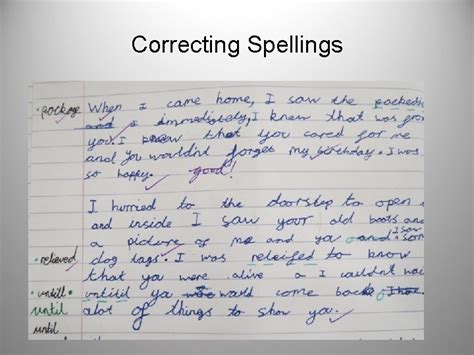 Correcting Spellings
• package When I came home, I saw the
and a immediately, I knew that was from
you. I knew that you cared for me
and you wouldnt forget my birthday. I was
so happy. good!
I hurried to the doorstep to open
and inside I saw your old boots and
a picture of me and you and I saw som
• relieved dog tags. I was releifed to know
that you were alive a I couldn't wai
• untill untilil you would come back.
until alot of things to show you.
until